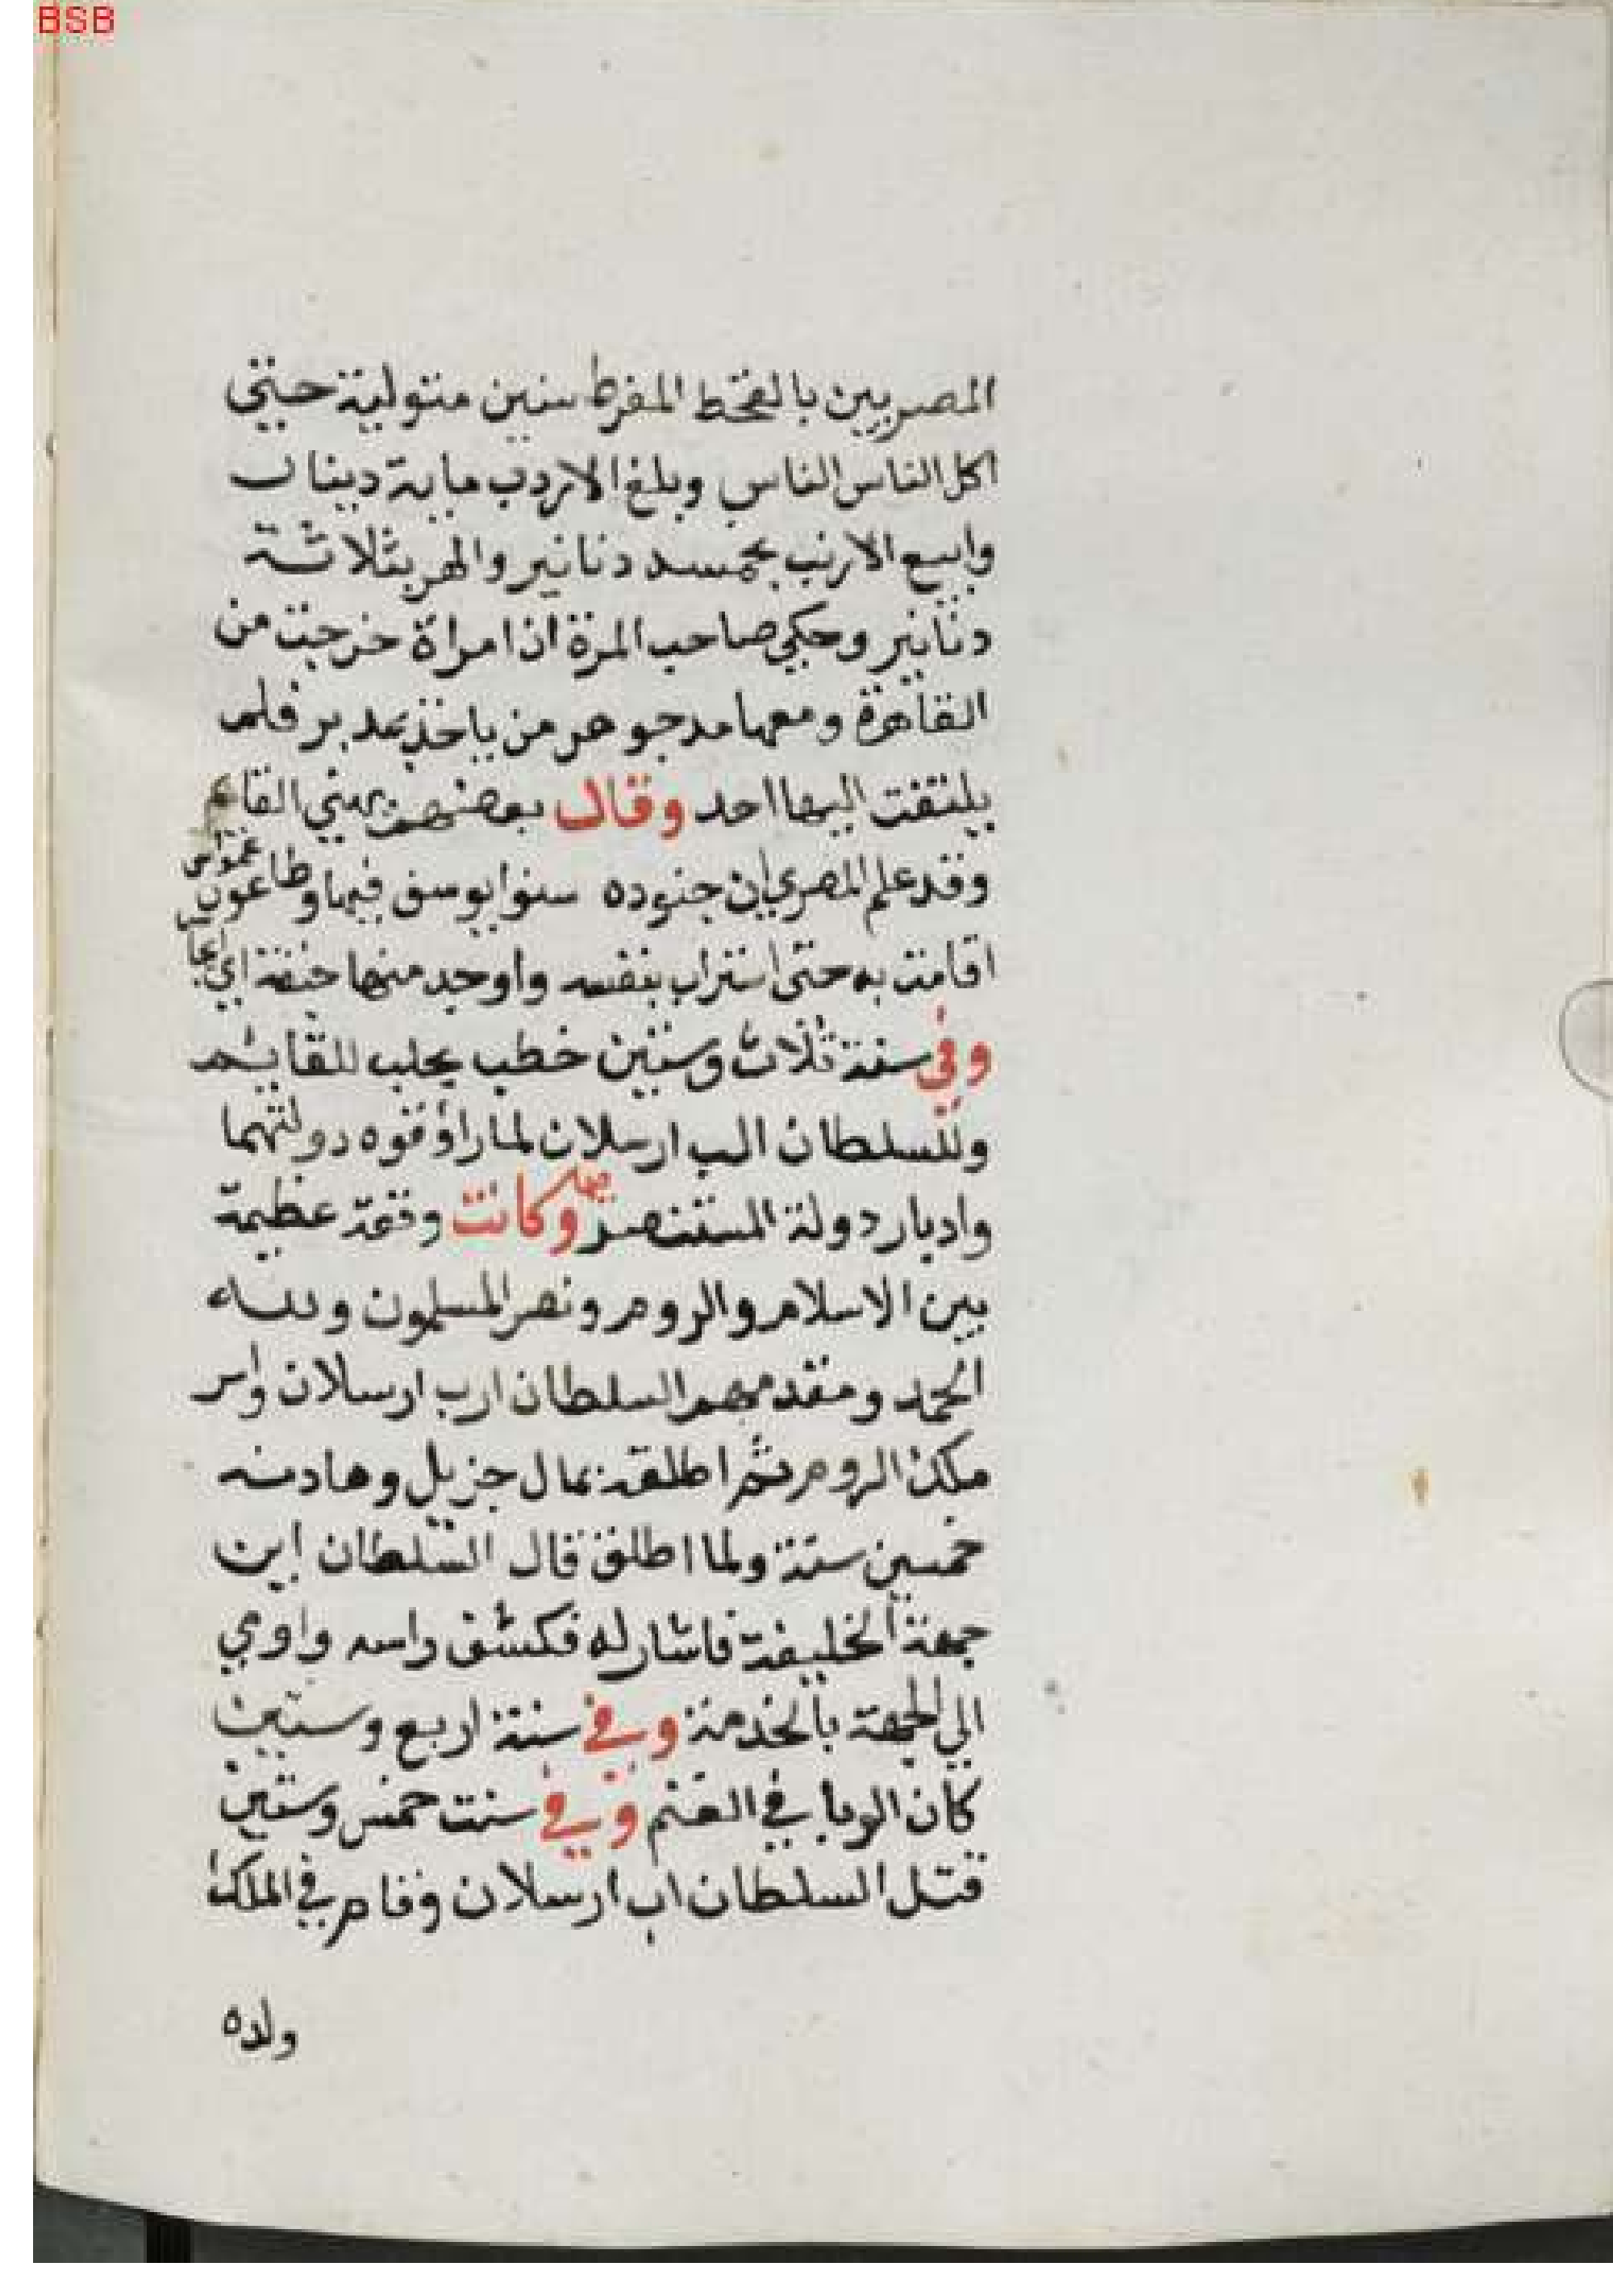 BSB
المصريين بالقحط المفرط سنين متولية حتي
اكل الناس الناس وبلغ الاردب ماية دينار
وابيع الارنب بخمسه دنانير والهر بثلاثة
دنانير وحكي صاحب المرة ان امراة خرجت من
القاهرة ومعها مد جوهر من ياخذ بمد بر فلم
يلتفت اليها احد وقال بعضهم يهني القايم
وقد علم المصري ان جنوده سنوا يوسف فيها وطاعون عمواس
اقامت به حتى استراب بنفسه واوجد منها خيفة اي
وفي سنة ثلاث وستين خطب بحلب للقايم
وللسلطان الب ارسلان لما راو قوه دولتهما
وادبار دولة المستنصر وكانت وقعة عظيمة
بين الاسلام والروم ونصر المسلمون ولله
الحمد ومقدمهم السلطان ارب ارسلان واسر
ملك الروم ثم اطلقه بمال جزيل وهادنه
خمسين سنة ولما اطلق قال السلطان اين
جهة الخليفة فاشار له فكشف راسه واومي
الي الجهة بالخدمة وفي سنة اربع وستين
كان الوبا في الغنم وفي سنت خمس وستين
قتل السلطان اب ارسلان وقام في الملك
ولده